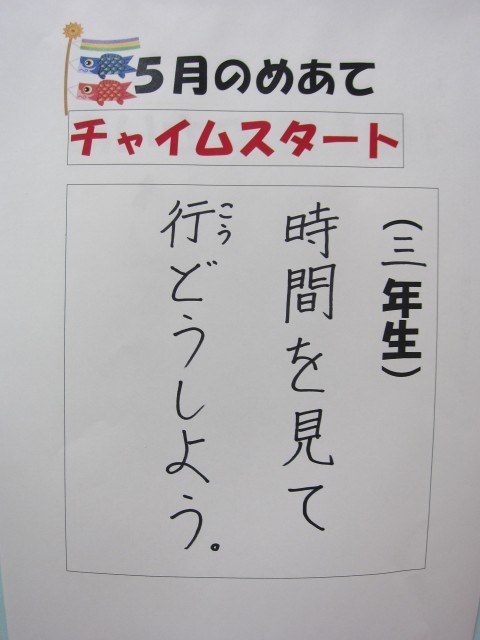 5月のめあて
チャイムスタート
(三年生)
時間を見て
行どうしよう。
こう